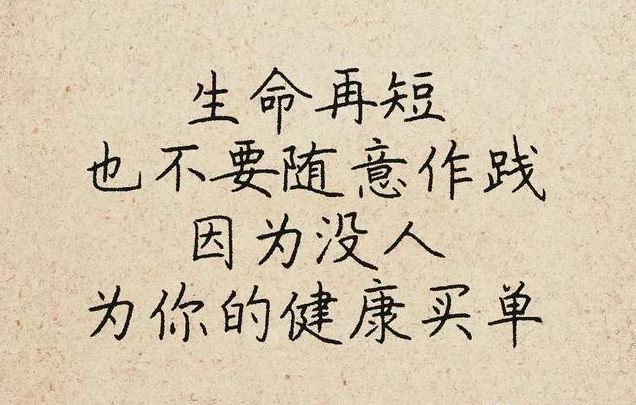 生命再短
也不要随意作践
因为没人
为你的健康买单